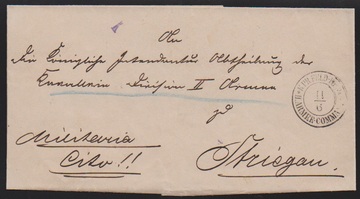 An
die Königliche Intendantur Abtheilung der
Kavallerie Division II Armee
zu
Striegau.
Militaria
Cito!!
11
6
ARMEE-COMM